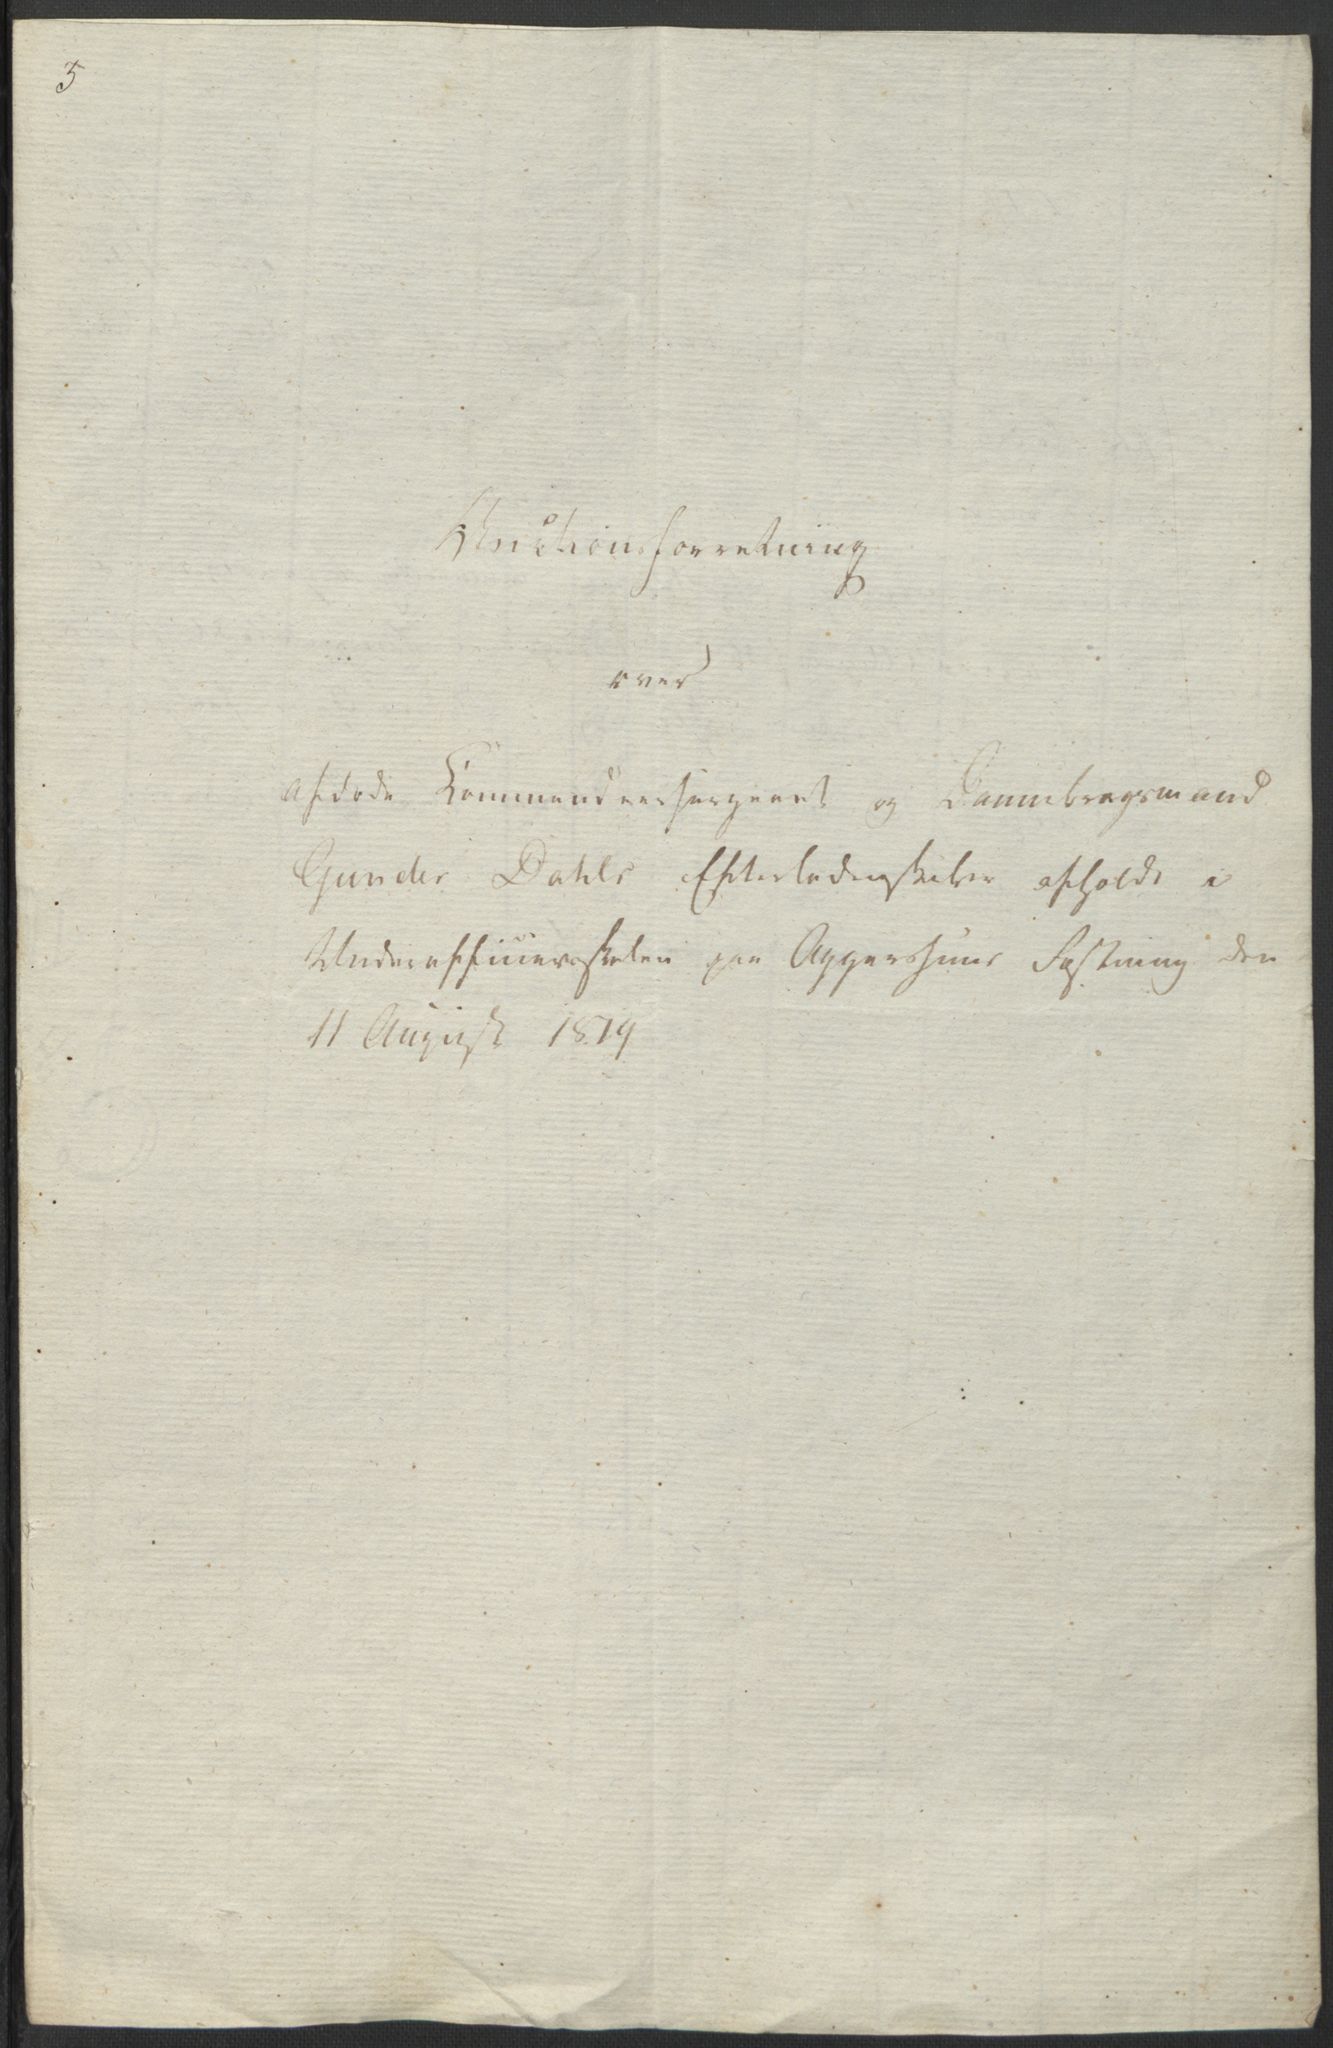 5
Auctionsforretning
over
afdøde Kommandeersergeant og Dannebrogsmand
Gunder Dahls Efterladenskaber afholdt i
Underofficeerskolen paa Aggershuus Fæstning den
11 August 1819